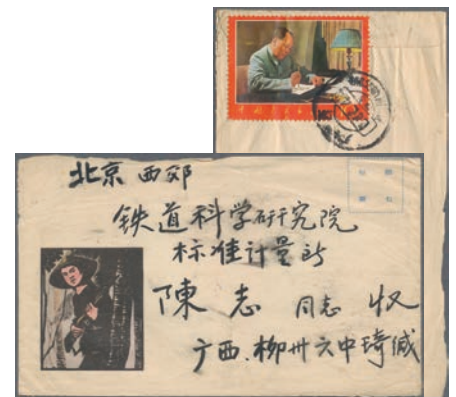 北京 西郊
铁道科学研究院
标准计量所
陳志 同志 收
广西.柳州六中琦缄